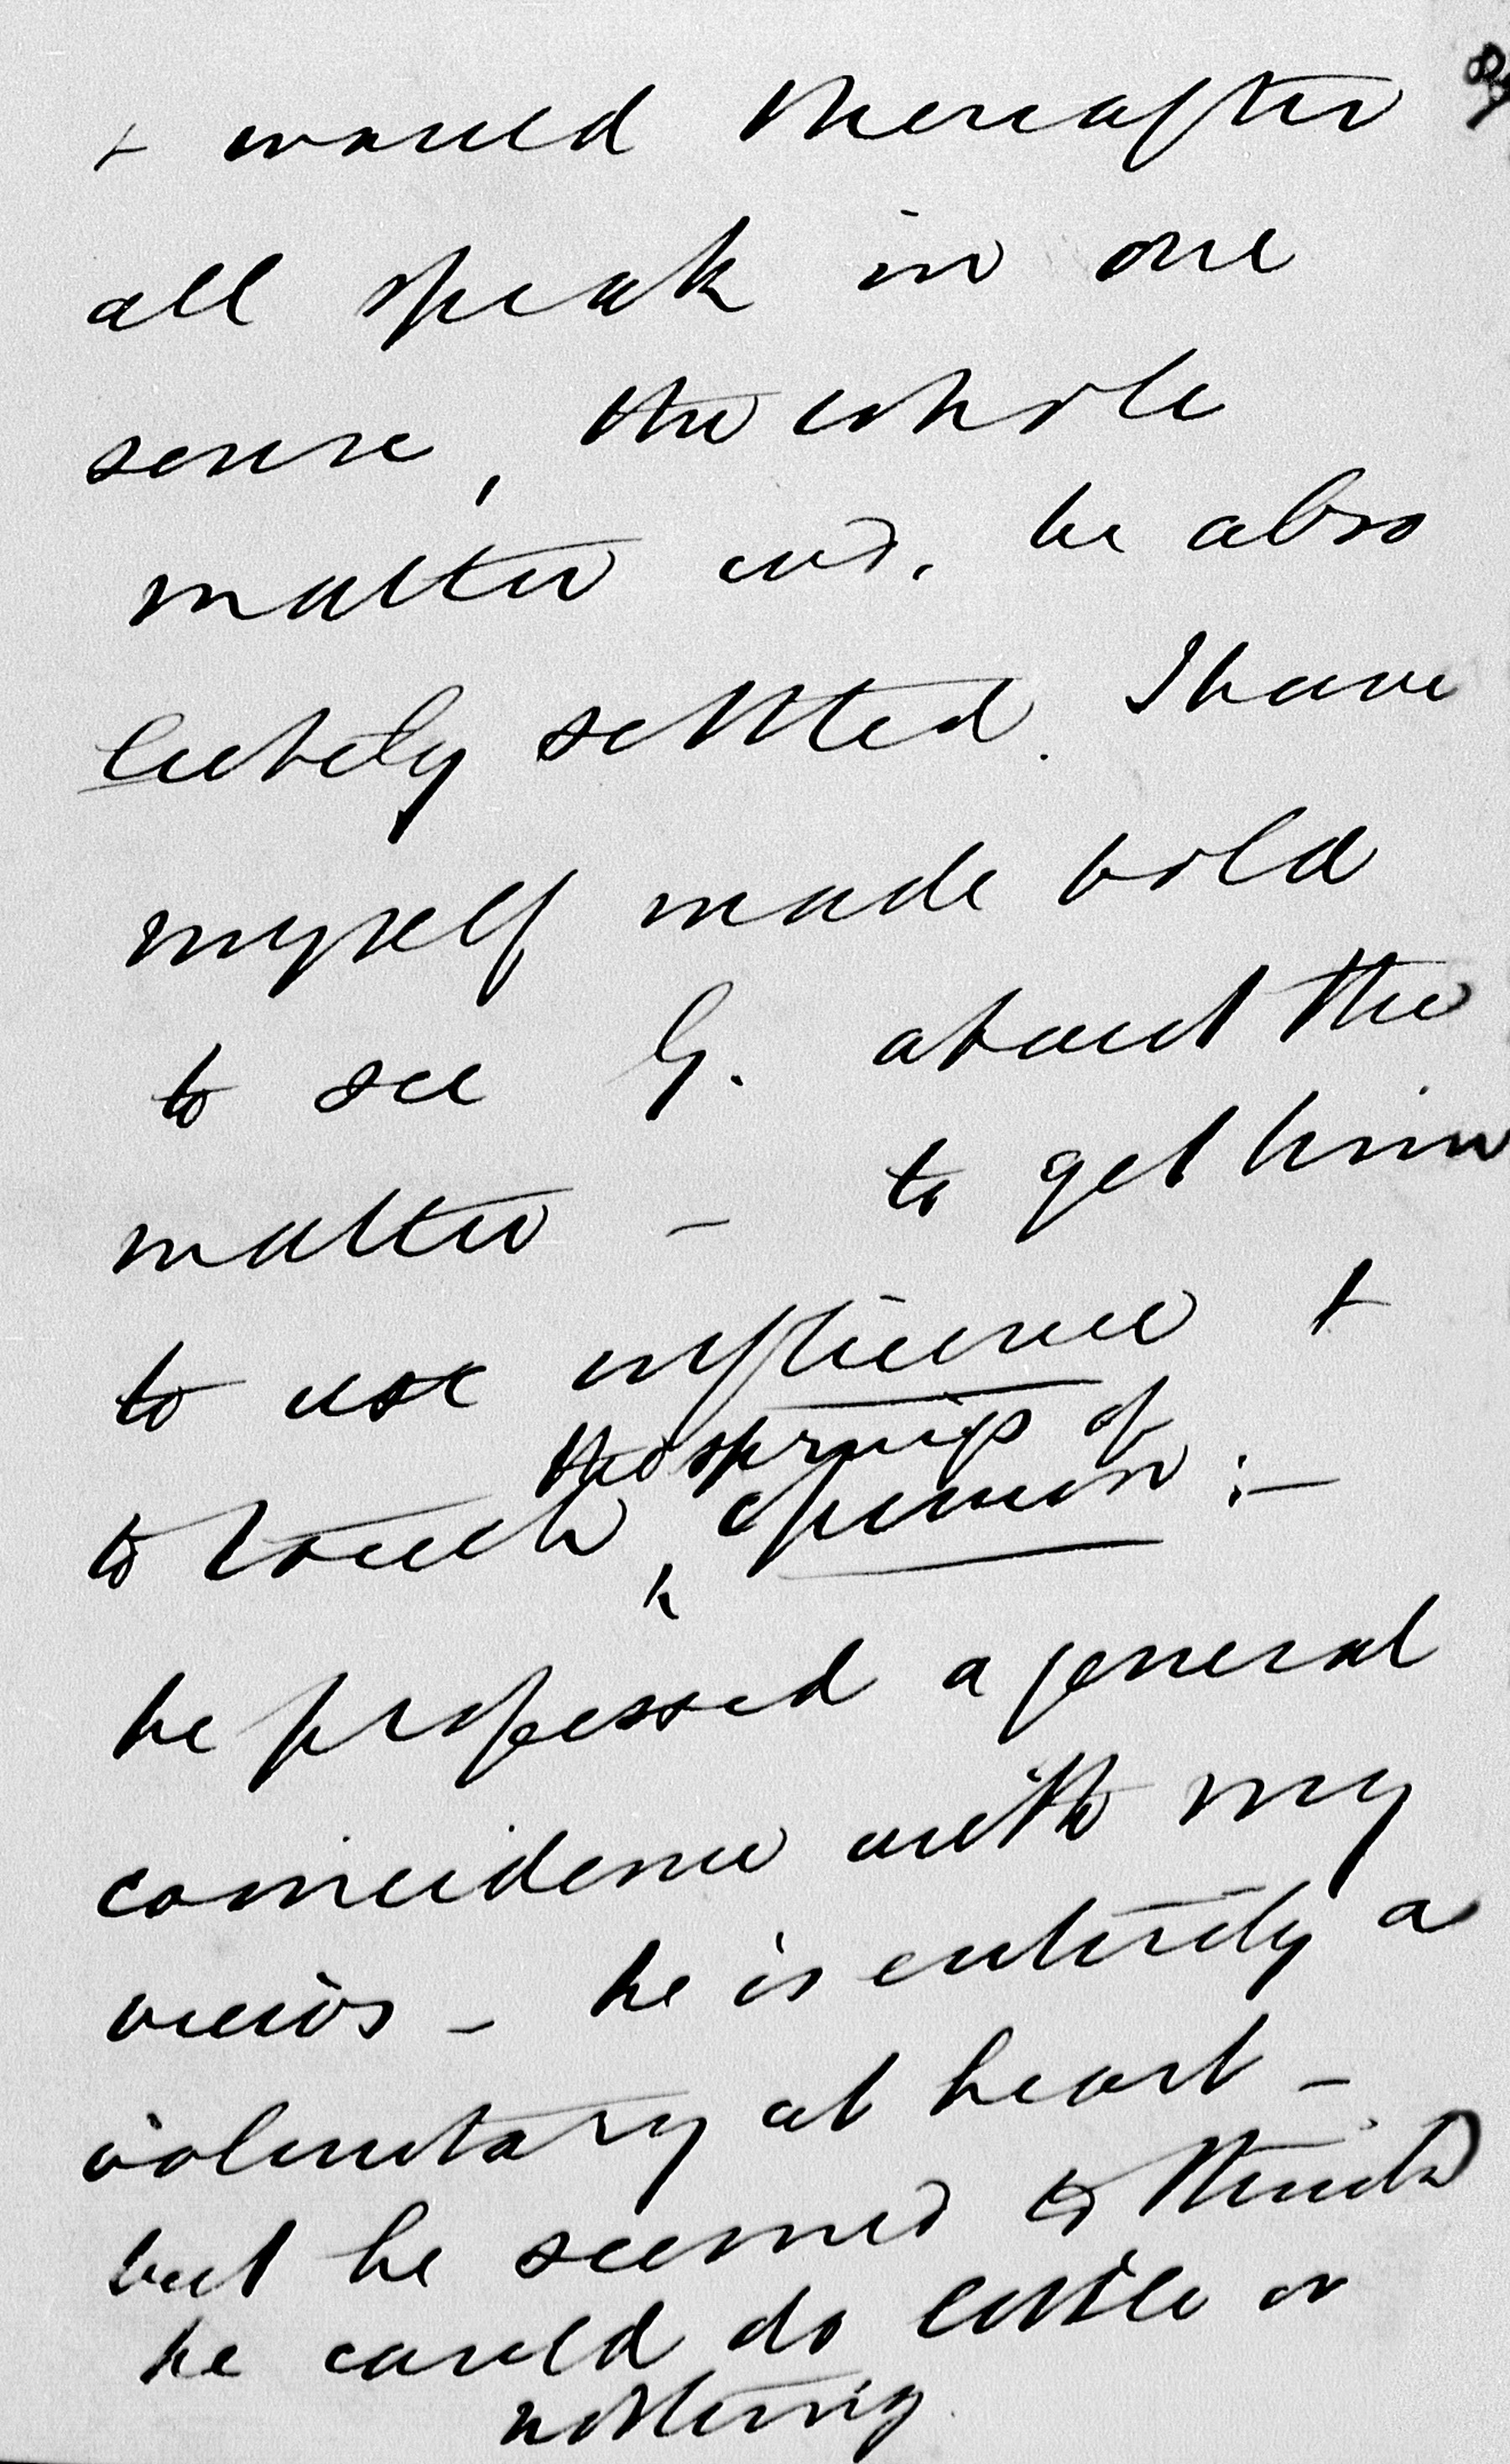 + would thereafter
all speak in one
sense, the whole
matter wd. be abso
lutely settled. I have
myself made bold
to see G. about the
matter – to get him
to use influence +
the springs of
to touch ^ opinion :–
he professed a general
coincidence with my
views – he is entirely a
voluntary at heart –
but he seemed to think
he could do little or
nothing.